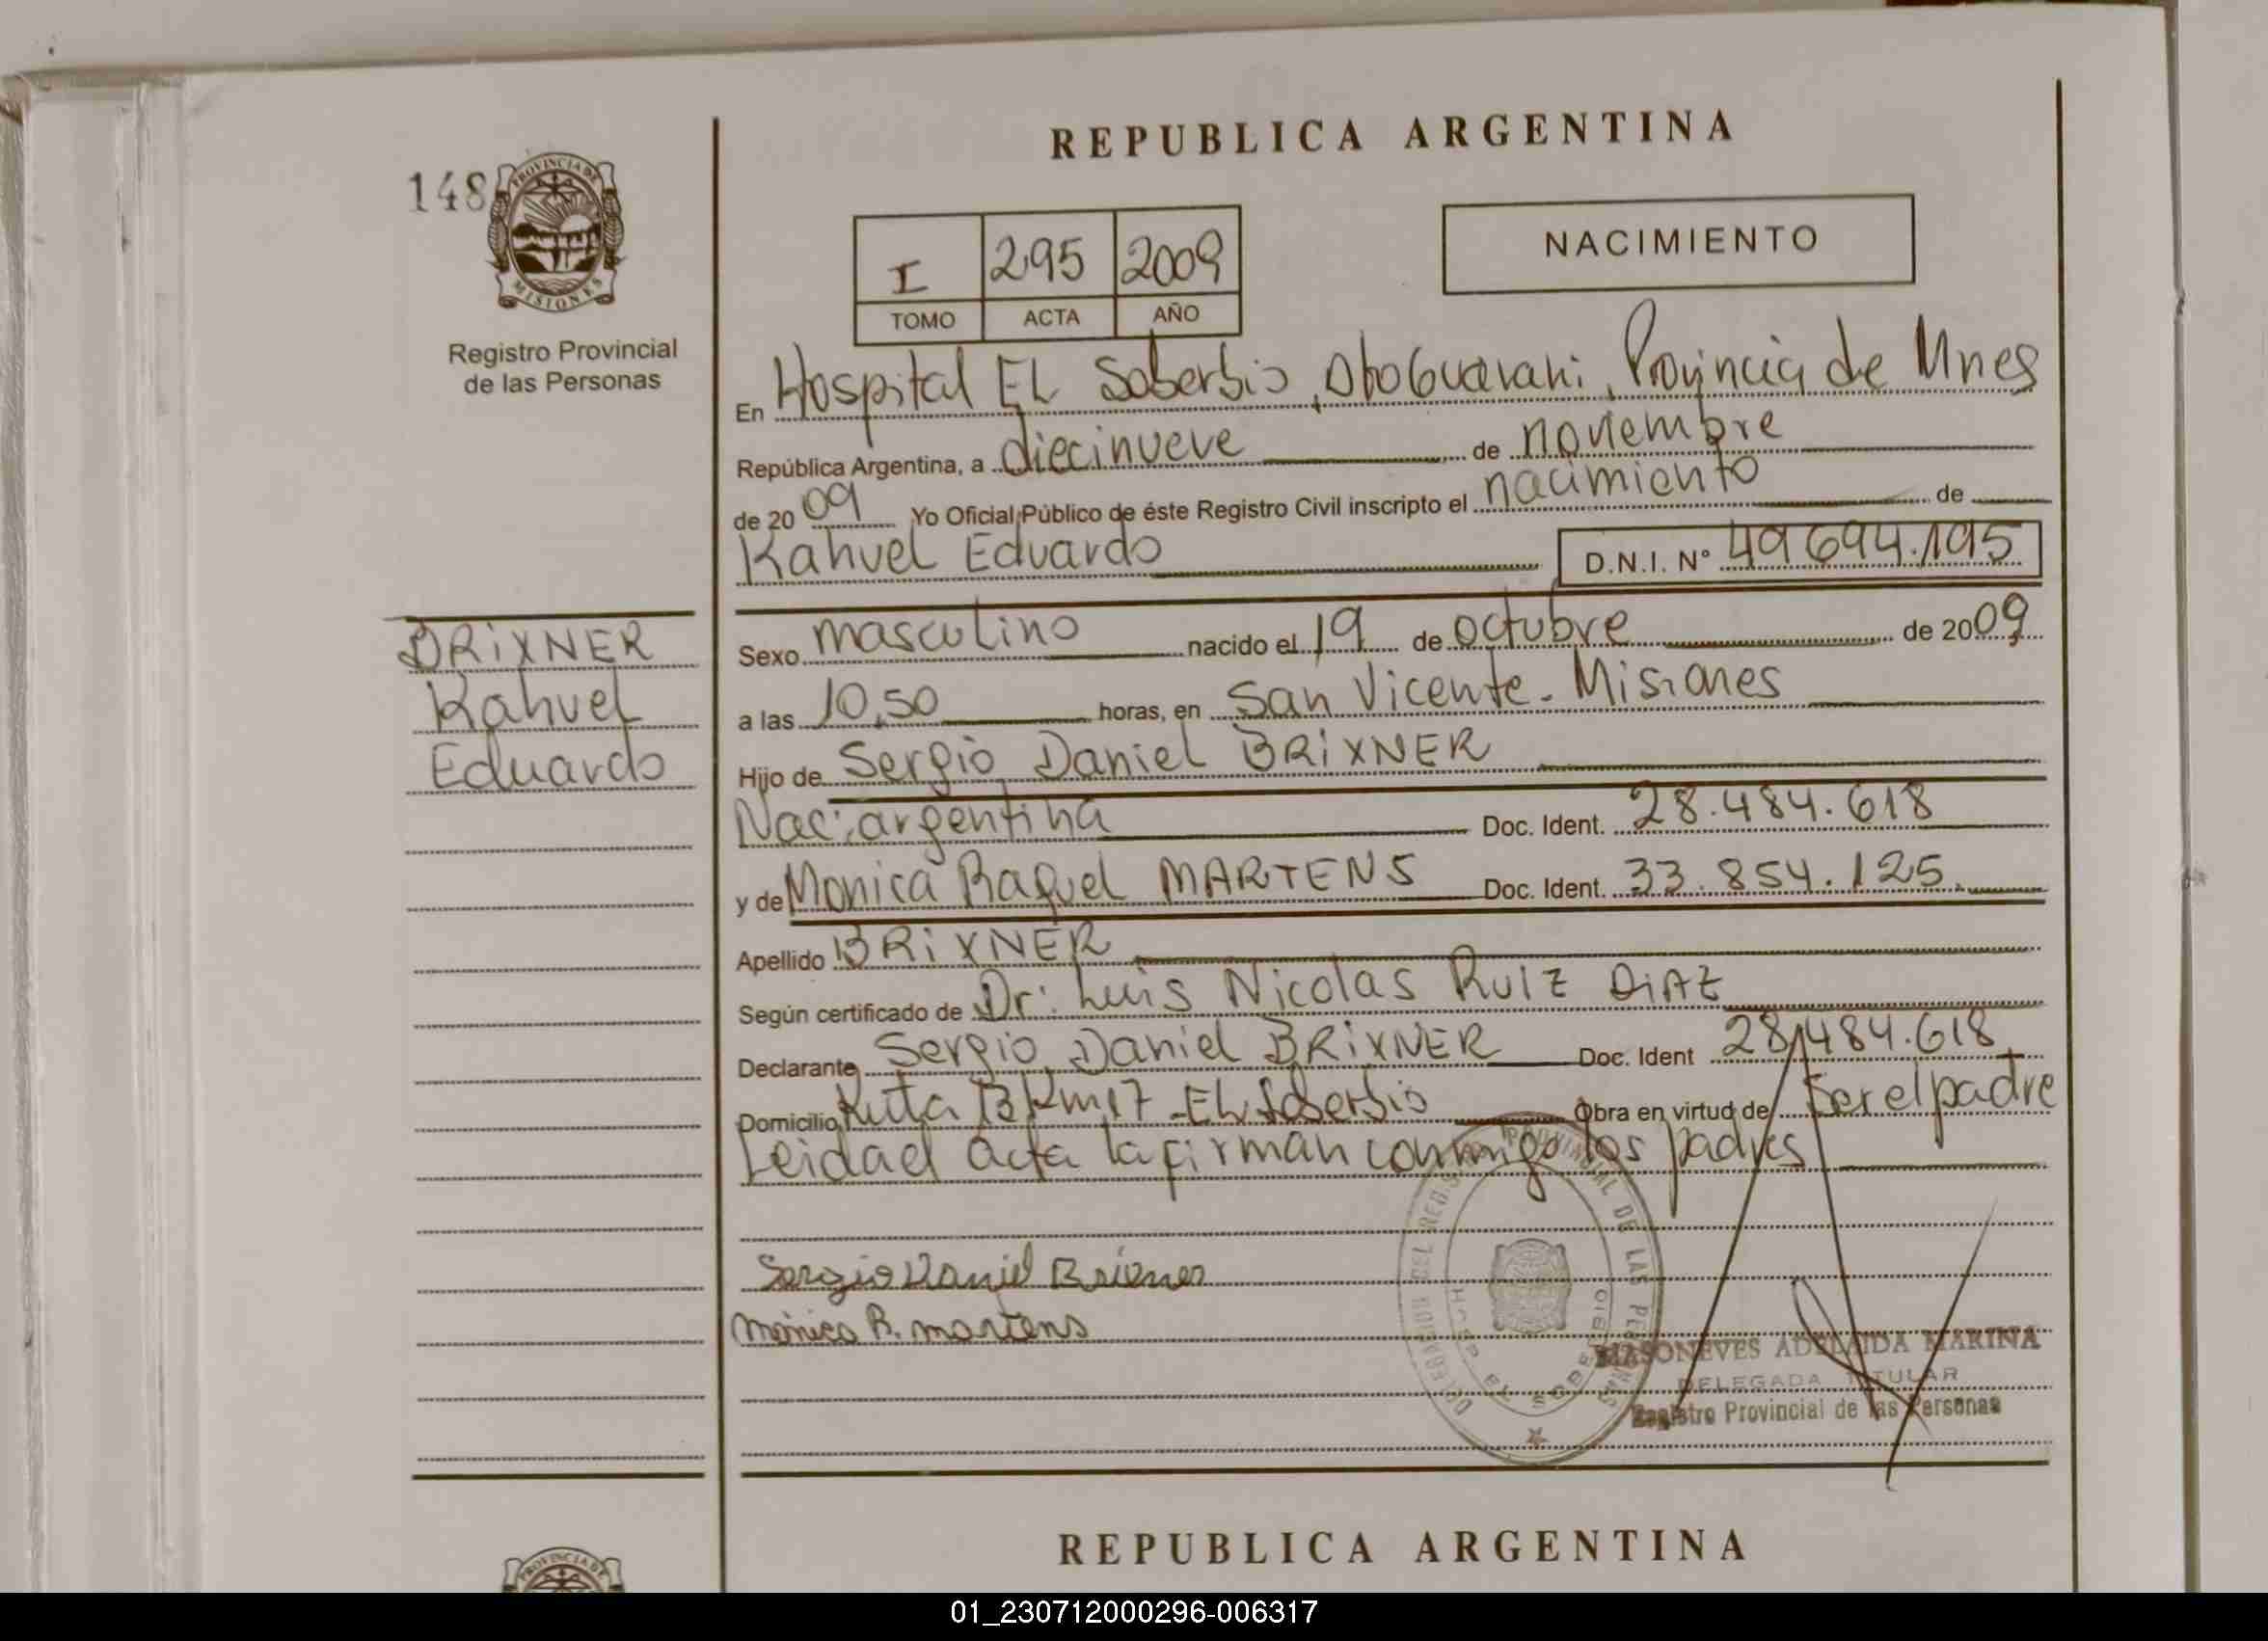 REPUBLICA ARGENTINA
148
PROVINCIA DE
MISIONES
Registro Provincial
de las Personas
I 295 2009
TOMO ACTA AÑO
NACIMIENTO
En Hospital EL Soberbio, Dto Guarani, Provincia de Mnes
República Argentina, a diecinueve de noviembre
de 2009 Yo Oficial Público de éste Registro Civil inscripto el nacimiento de
Kahuel Eduardo D.N.I. Nº 49694.195
BRIXNER
Kahuel
Eduardo
Sexo masculino nacido el 19 de octubre de 2009
a las 10,50 horas, en San Vicente - Misiones
Hijo de Sergio Daniel BRIXNER
Nac: argentina Doc. Ident. 28.484.618
y de Monica Raquel MARTENS Doc. Ident. 33.854.125
Apellido BRIXNER
Según certificado de Dr: Luis Nicolas RUIZ DIAZ
Declarante Sergio Daniel BRIXNER Doc. Ident 28.484.618
Domicilio Ruta 13 Km 17 - EL Soberbio Obra en virtud de Ser el padre
Leida el acta la firman conmigo los padres
Sergio Daniel Brixner
Mónica R. martens
DELEGACION DEL REG. PROVINCIAL DE LAS PERSONAS
EL SOBERBIO
MASONEVES ADELAIDA MARINA
DELEGADA TITULAR
Registro Provincial de las Personas
REPUBLICA ARGENTINA
PROVINCIA DE
01_230712000296-006317